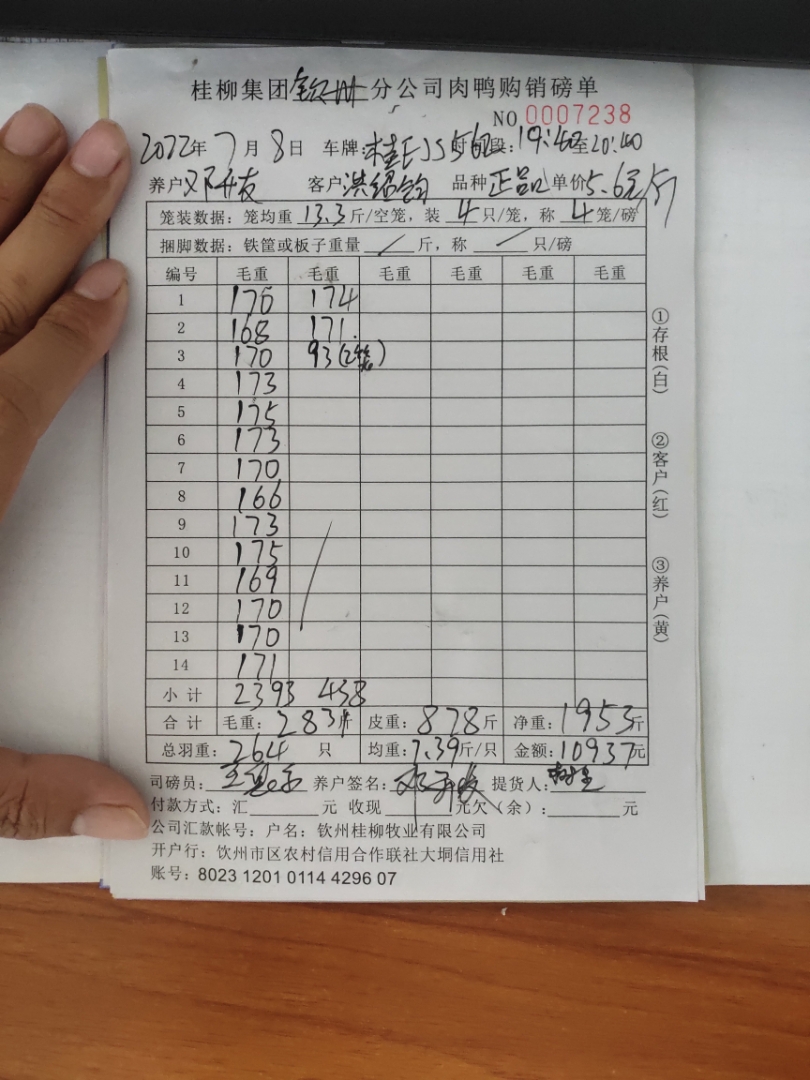 桂柳集团钦州分公司肉鸭购销磅单
NO 0007238
2022年7月8日 车牌: 时间段: 19:40至20:40
养户邓开友 客户洪绍钧 品种正品 单价5.6元/斤
笼装数据: 笼均重 13.3斤/空笼, 装 4 只/笼, 称 4 笼/磅
捆脚数据: 铁筐或板子重量 / 斤, 称 / 只/磅
编号 毛重 毛重 毛重 毛重 毛重 毛重
1 170 174
2 168 171
3 170 93(2笼)
4 173
5 175
6 173
7 170
8 166
9 173
10 175
11 169
12 170
13 170
14 171
小计 2393 438
合计 毛重: 2831斤 皮重: 878斤 净重: 1953斤
总羽重: 264 只 均重: 7.39斤/只 金额: 10937元
司磅员: 养户签名: 邓开友 提货人:
付款方式: 汇 元 收现 元欠(余): 元
公司汇款帐号: 户名: 钦州桂柳牧业有限公司
开户行: 饮州市区农村信用合作联社大垌信用社
账号: 8023 1201 0114 4296 07
①存根(白)
②客户(红)
③养户(黄)